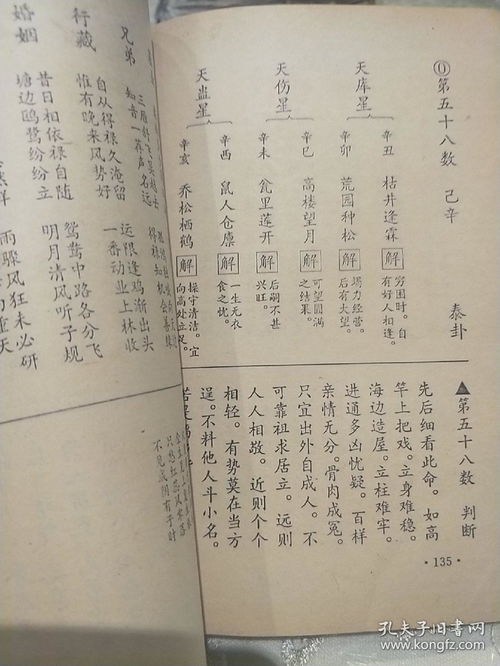 ⓪第五十八数 己辛
泰卦
天库星
辛丑 枯井逢霖 解 穷困时。自有好人相逢。
辛卯 荒园种松 解 竭力经营。后有大望。
天伤星
辛巳 高楼望月 解 可望圆满之结果。
辛未 瓮里莲开 解 后嗣不甚兴旺。
天蛊星
辛酉 鼠人仓廪 解 一生无衣食之忧。
辛亥 乔松栖鹤 解 操守清洁。宜向高处立足。
▲第五十八数 判断
先后细看此命。如高
竿上把戏。立身难稳。
海边造屋。立柱难牢。
进通多凶忧疑。百样
亲情无分。骨肉成冤。
只宜出外自成人。不
可靠祖求居立。远则
人人相敬。近则个个
相轻。有势莫在当方
逞。不料他人斗小名。
·135·
兄弟
知音一荐声名远
行藏
自从得禄久淹留 运限逢鸡渐出头
惟有晚来风势好 一番动业上林收
婚姻
昔日相依禄自随 鸳鸯中路各分飞
塘边鸥鹭纷纷立 明月清风听子规
雨骤风狂未必研
不见成阴有子时
孔夫子旧书网
www.kongfz.com